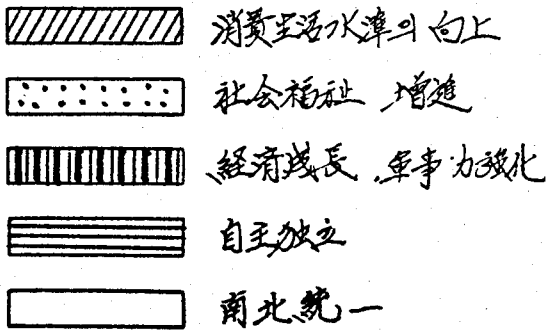 消費生活水準의 向上
社会福祉 增進
経済成長, 軍事力強化
自主独立
南北統一